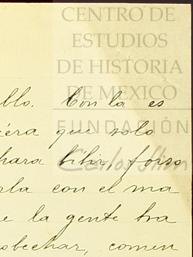 CENTRO DE
ESTUDIOS
DE HISTORIA
DE MEXICO
FUNDACIÓN
Carlos Slim
llo. Con la es
iera que solo
hara
rla con el ma
e la gente bra
obechar, comen